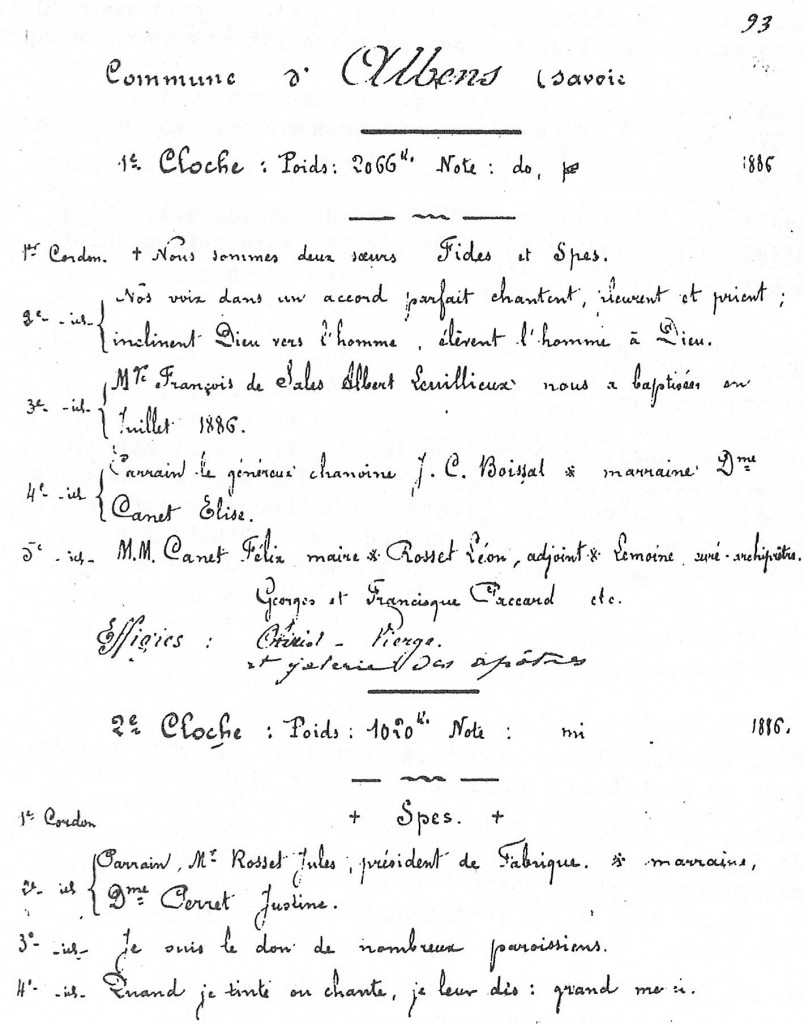 93
Commune d' Albens (Savoie
1e Cloche : Poids: 2066 k. Note : do, 1886
1er Cordon. + Nous sommes deux sœurs Fides et Spes.
2e -id- Nos voix dans un accord parfait chantent, pleurent et prient ;
inclinent Dieu vers l'homme, élèvent l'homme à Dieu.
3e -id- François de Sales Albert Leuillieux nous a baptisées en
Juillet 1886.
4e -id- Parrain le généreux chanoine J. C. Boissat * marraine Dme
Canet Elise.
5e -id- M.M. Canet Félix maire * Rosset Léon, adjoint * Lemoine curé-archiprêtre.
Georges et Francisque Paccard etc.
Effigies : Christ - Vierge.
et galerie des apôtres
2e Cloche : Poids : 1020 k. Note : mi 1886.
1e Cordon + Spes. +
2e id Parrain, Mr Rosset Jules, président de Fabrique. * marraine,
Dme Perret Justine.
3e -id- Je suis le don de nombreux paroissiens.
4e -id- Quand je tinte ou chante, je leur dis : grand